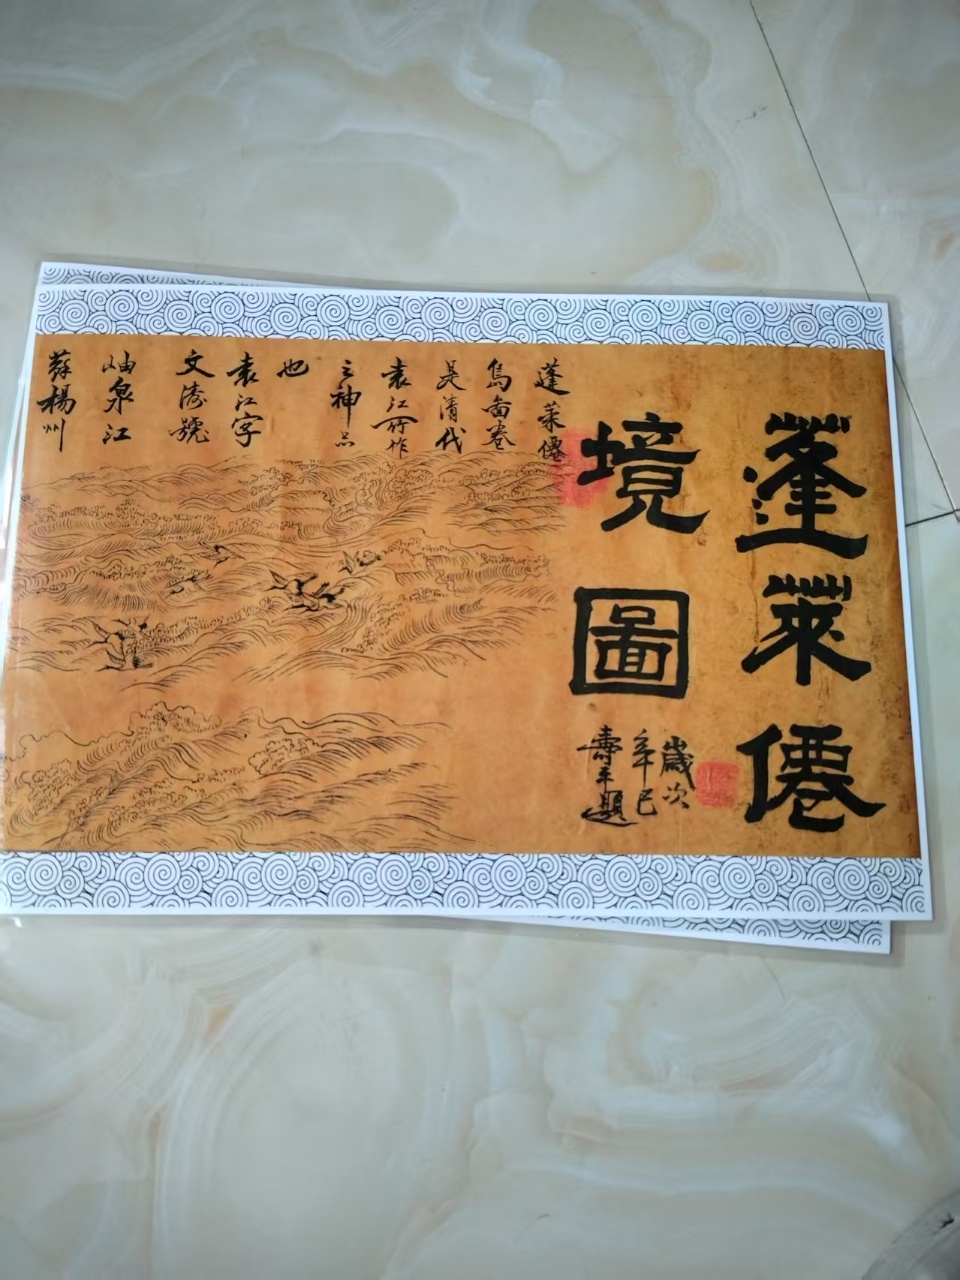 蓬萊僊
境圖
歲次
辛巳
壽平題
蓬萊僊
島啚卷
是清代
袁江所作
之神品
也
袁江字
文濤號
岫泉江
蘇楊州